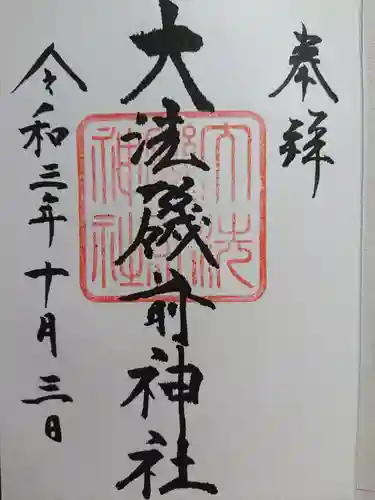 奉拝
大洗磯前神社
大洗磯前神社
令和三年十月三日